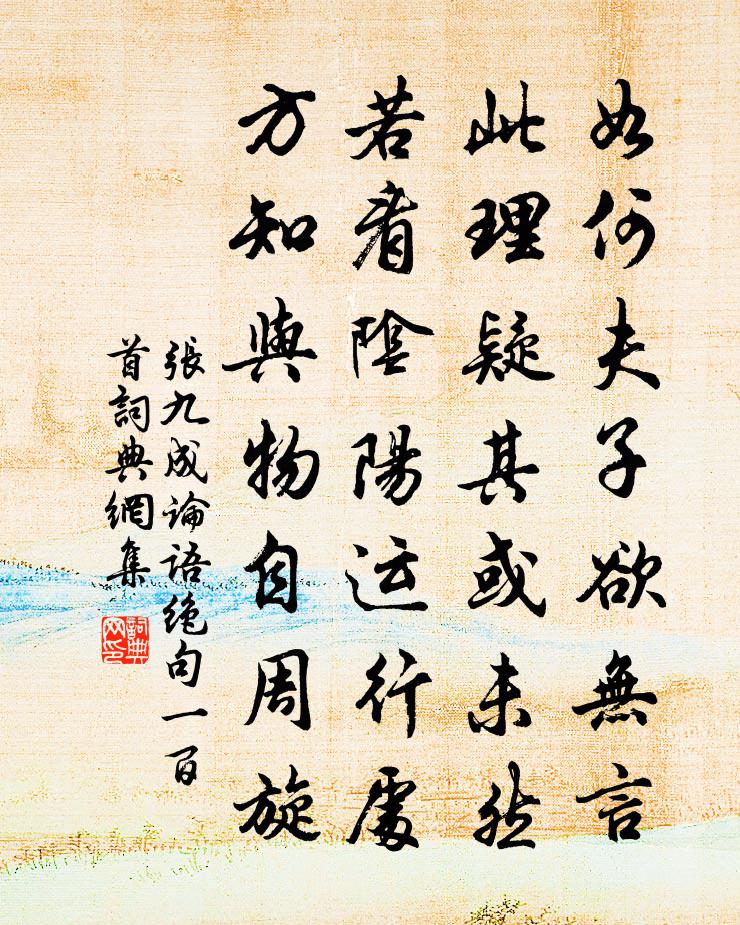 如何夫子欲無言
此理疑其或未然
若看陰陽运行處
方知與物自周旋
張九成論語绝句一百
首詞典網集
詞典网印